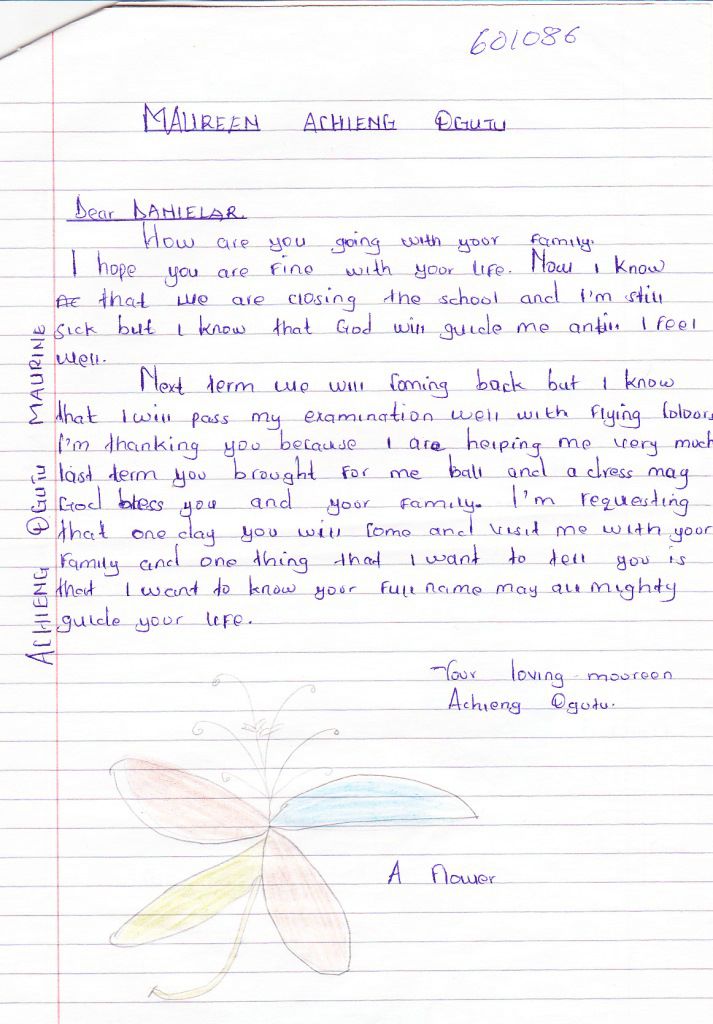 601086
MAUREEN ACHIENG OGUTU
Dear DANIELAR.
How are you going with your family.
I hope you are fine with your life. Now I know
that we are closing the school and I'm still
sick but I know that God will guide me antill I feel
well.
Next term we will coming back but I know
that I will pass my examination well with flying colours
I'm thanking you because I are helping me very much
last term you brought for me ball and a dress may
God bless you and your family. I'm requesting
that one day you will come and visit me with your
family and one thing that I want to tell you is
that I want to know your full name may all mighty
guide your life.
Your loving moureen
Achieng Ogutu.
ACHIENG OGUTU MAURINE
A flower